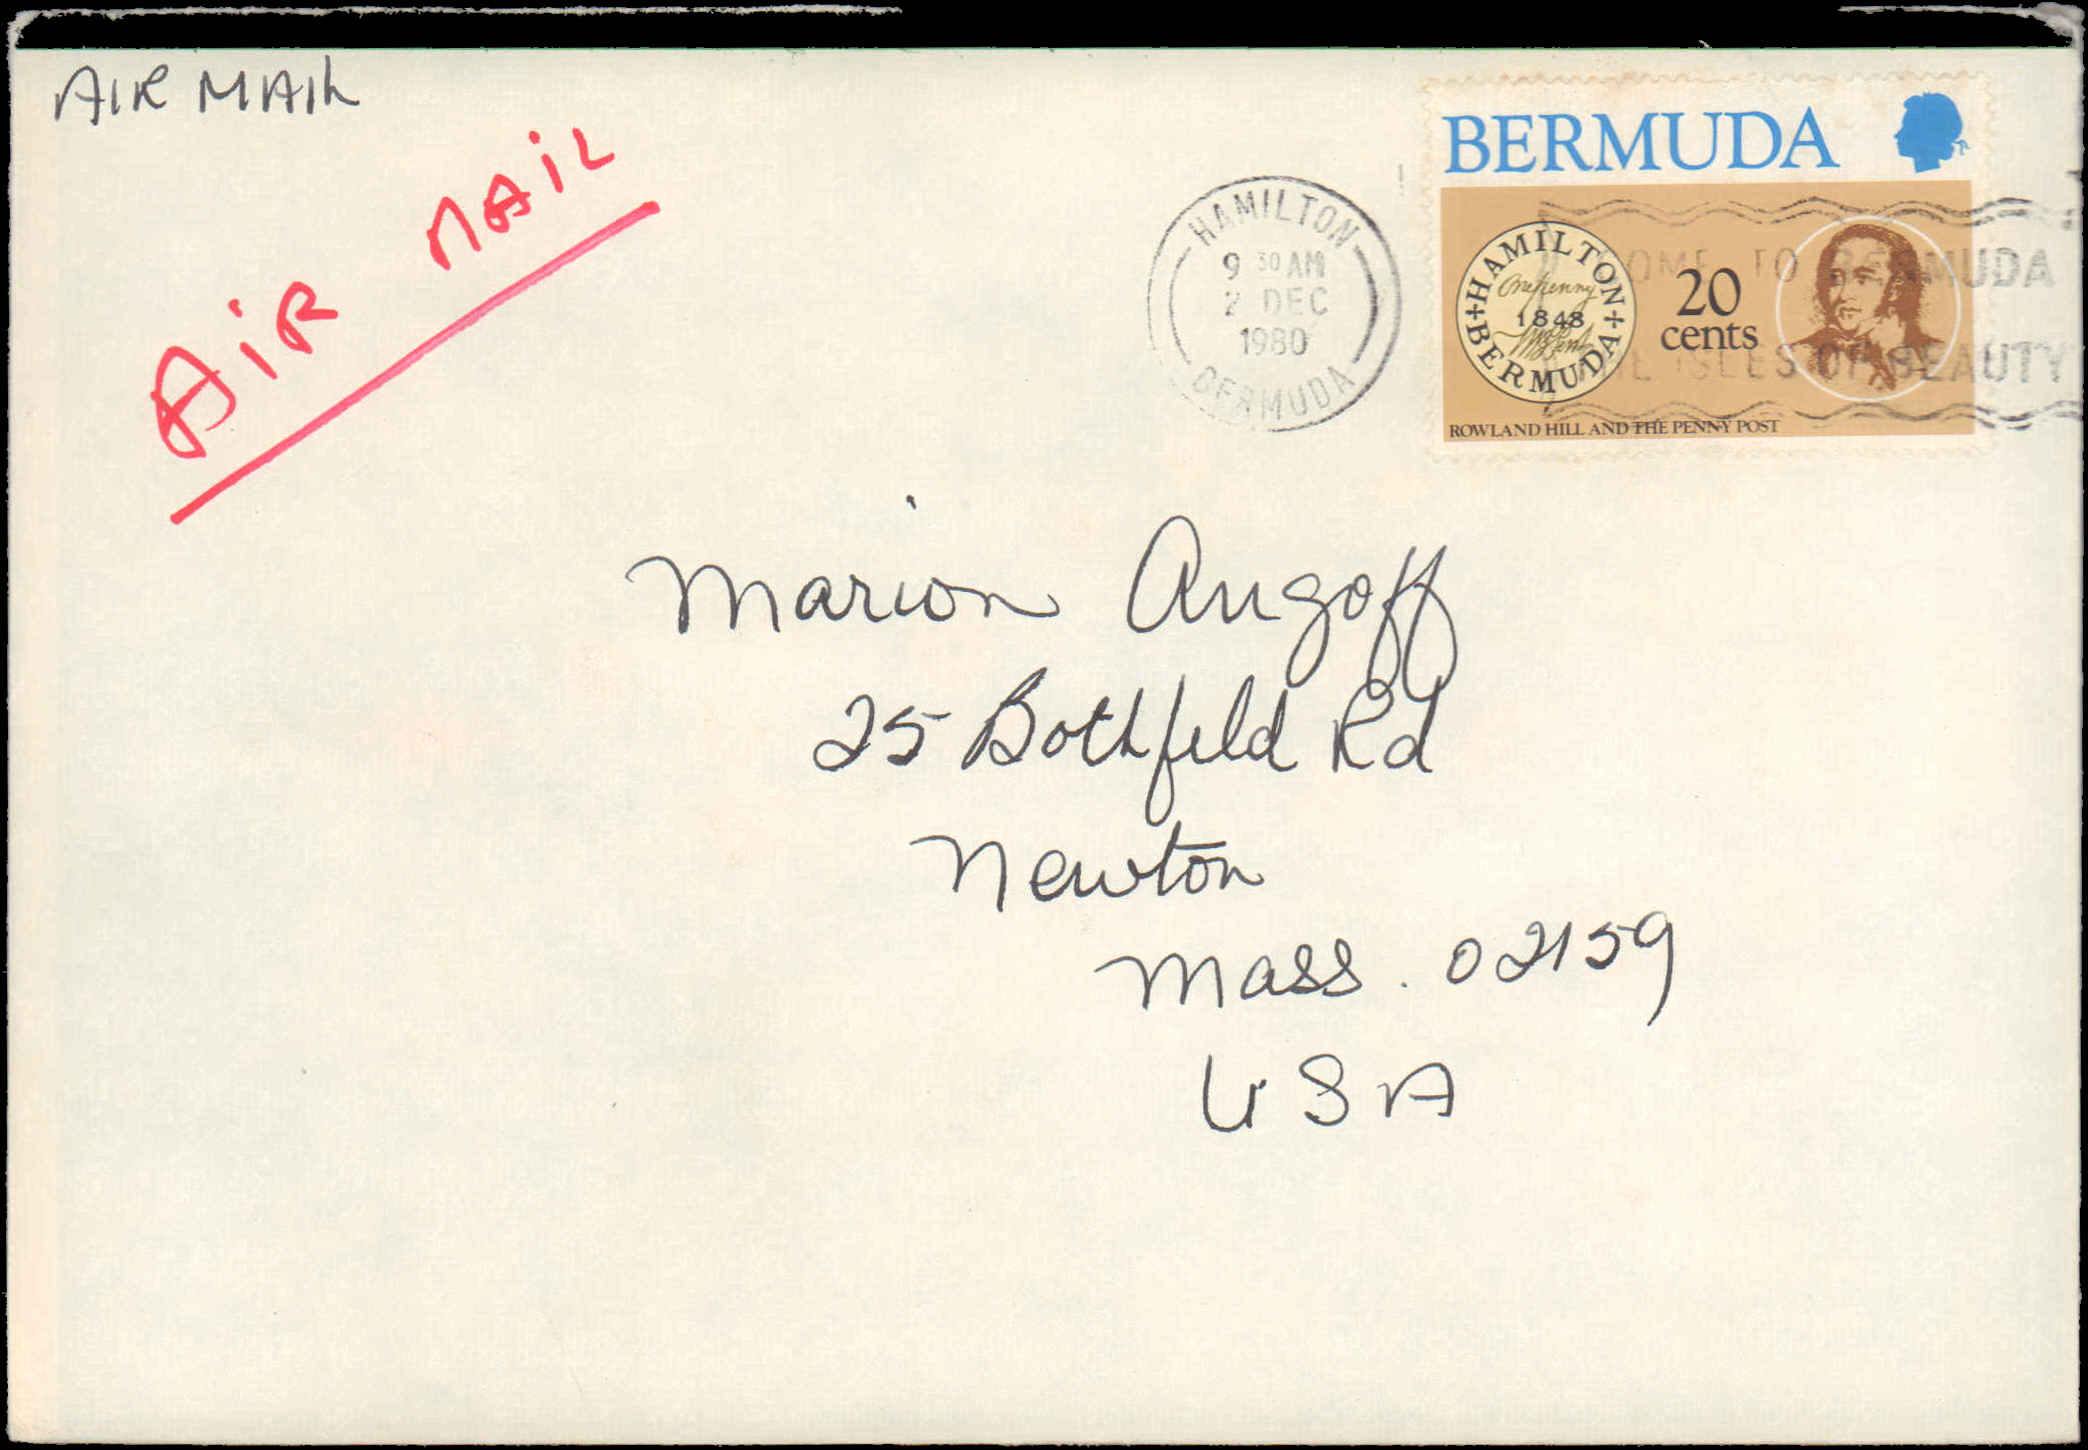 AIR MAIL
AiR MAiL
HAMILTON
9 30 AM
2 DEC
1980
BERMUDA
BERMUDA
HAMILTON
Onepenny
1848
BERMUDA
20
cents
TO BERMUDA
ISLES OF BEAUTY
ROWLAND HILL AND THE PENNY POST
Marion Angoff
25 Bothfeld Rd
Newton
Mass. 02159
USA